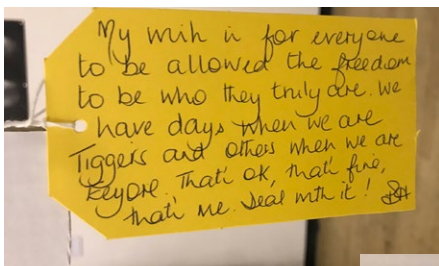 My wish is for everyone
to be allowed the freedom
to be who they truly are. We
have days when we are
Tiggers and others when we are
Eeyore. That's ok, that's fine,
that's me. Deal with it!